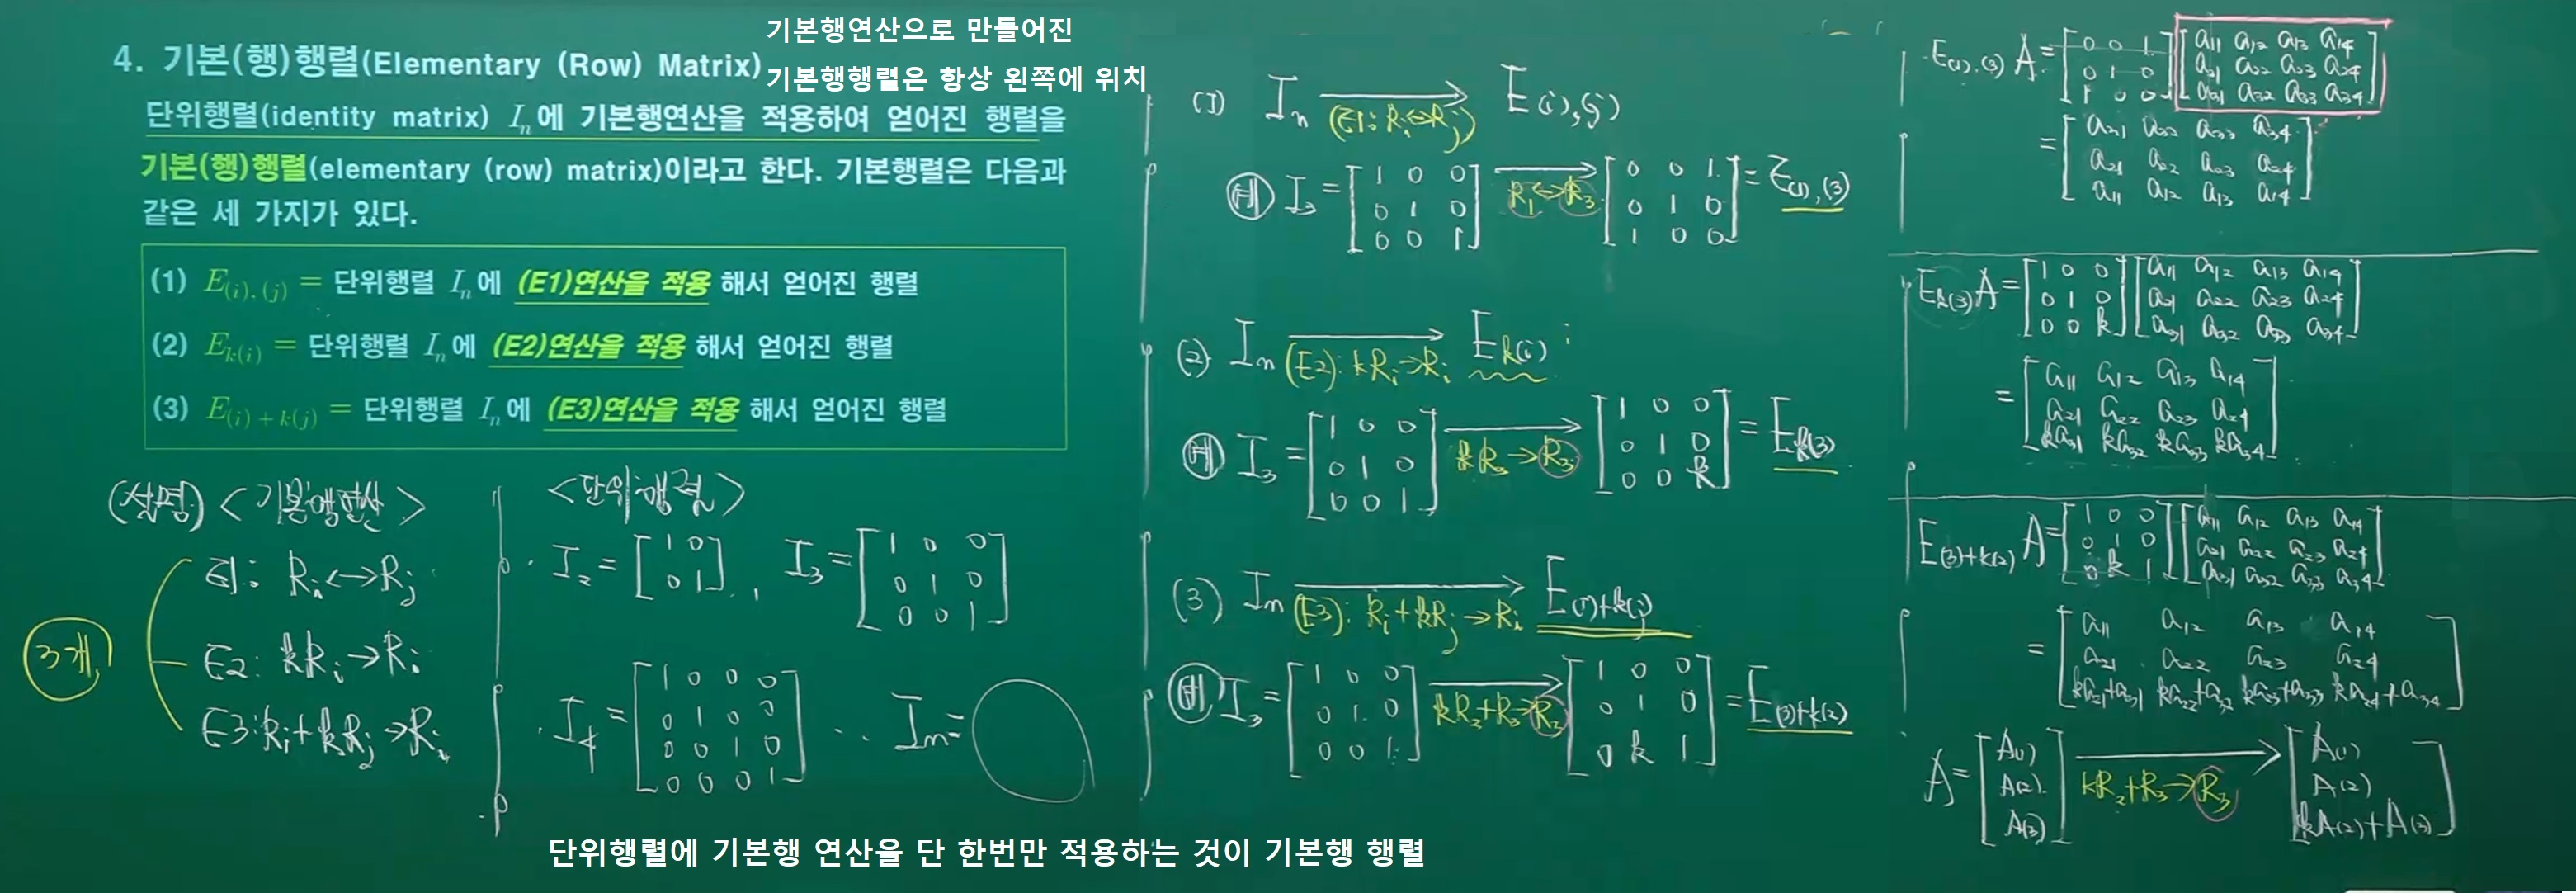 4. 기본(행)행렬(Elementary (Row) Matrix)
기본행연산으로 만들어진
기본행행렬은 항상 왼쪽에 위치
단위행렬(identity matrix) I_n에 기본행연산을 적용하여 얻어진 행렬을
기본(행)행렬(elementary (row) matrix)이라고 한다. 기본행렬은 다음과
같은 세 가지가 있다.
(1) E_{(i), (j)} = 단위행렬 I_n에 (E1)연산을 적용 해서 얻어진 행렬
(2) E_{k(i)} = 단위행렬 I_n에 (E2)연산을 적용 해서 얻어진 행렬
(3) E_{(i) + k(j)} = 단위행렬 I_n에 (E3)연산을 적용 해서 얻어진 행렬
(설명) <기본행연산>
3개
E1: R_i ↔ R_j
E2: kR_i → R_i
E3: R_i + kR_j → R_i
<단위행렬>
I_2 = [1 0
0 1] , I_3 = [1 0 0
0 1 0
0 0 1]
I_4 = [1 0 0 0
0 1 0 0
0 0 1 0
0 0 0 1] ... I_n =
단위행렬에 기본행 연산을 단 한번만 적용하는 것이 기본행 행렬
(1) I_n → (E1: R_i ↔ R_j) E_{(i),(j)}
예 I_3 = [1 0 0
0 1 0
0 0 1] → R_1 ↔ R_3 [0 0 1
0 1 0
1 0 0] = E_{(1),(3)}
(2) I_n → (E2): kR_i → R_i E_{k(i)}
예 I_3 = [1 0 0
0 1 0
0 0 1] → kR_3 → R_3 [1 0 0
0 1 0
0 0 k] = E_{k(3)}
(3) I_n → (E3): R_i + kR_j → R_i E_{(i)+k(j)}
예 I_3 = [1 0 0
0 1 0
0 0 1] → kR_2 + R_3 → R_2 [1 0 0
0 1 0
0 k 1] = E_{(3)+k(2)}
E_{(1),(3)} A = [0 0 1
0 1 0
1 0 0] [a_11 a_12 a_13 a_14
a_21 a_22 a_23 a_24
a_31 a_32 a_33 a_34]
= [a_31 a_32 a_33 a_34
a_21 a_22 a_23 a_24
a_11 a_12 a_13 a_14]
E_{k(3)} A = [1 0 0
0 1 0
0 0 k] [a_11 a_12 a_13 a_14
a_21 a_22 a_23 a_24
a_31 a_32 a_33 a_34]
= [a_11 a_12 a_13 a_14
a_21 a_22 a_23 a_24
ka_31 ka_32 ka_33 ka_34]
E_{(3)+k(2)} A = [1 0 0
0 1 0
0 k 1] [a_11 a_12 a_13 a_14
a_21 a_22 a_23 a_24
a_31 a_32 a_33 a_34]
= [a_11 a_12 a_13 a_14
a_21 a_22 a_23 a_24
ka_21+a_31 ka_22+a_32 ka_23+a_33 ka_24+a_34]
A = [A(1)
A(2)
A(3)] → kR_2 + R_3 → R_3 [A(1)
A(2)
kA(2)+A(3)]